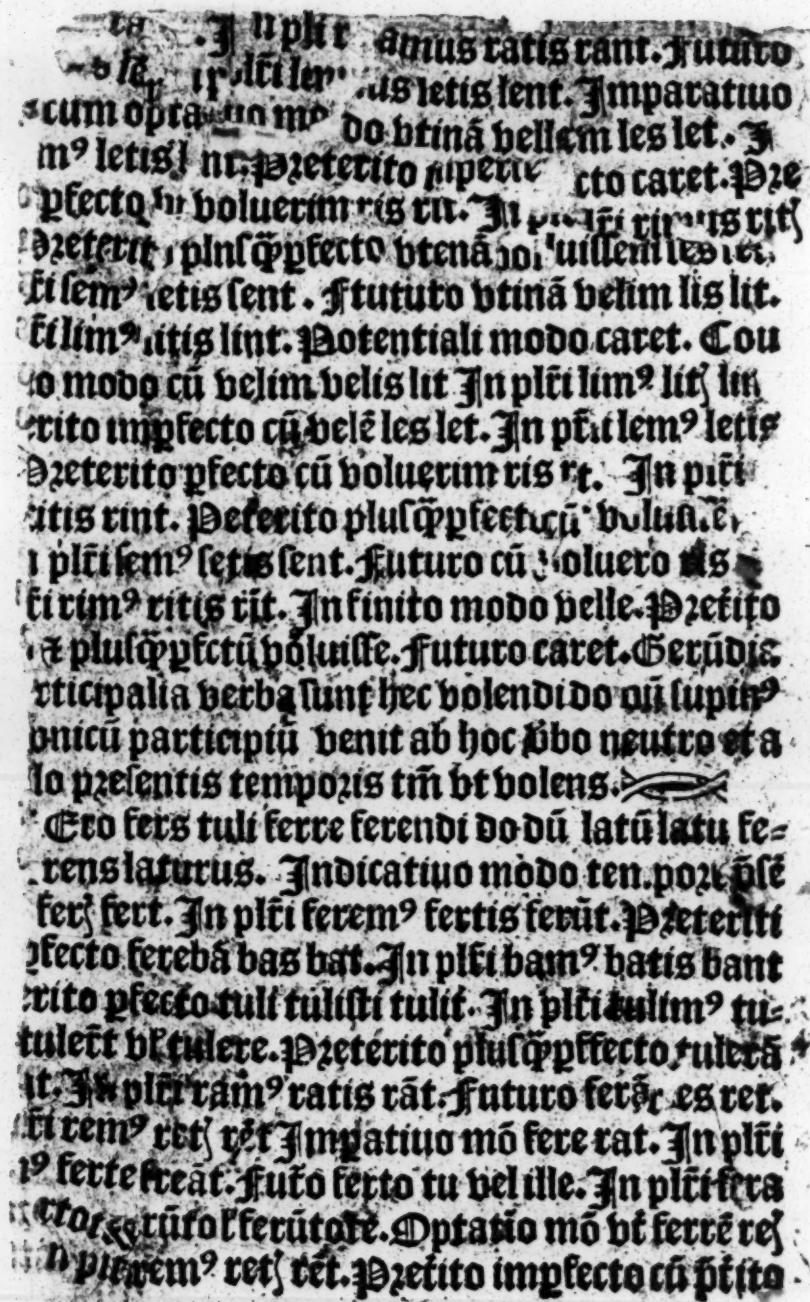 ra . In plr̃i ramus ratis rant. Futuro
plr̃i lem us letis lent. Imparatiuo
cum opta uo mo do vtinã vellem les let. I
mꝰ letis nt. Preterito inperfe cto caret. Pre
ꝑfecto voluerim ris rit. In plr̃i rimus ritꝭ
Preterit plusq̃ꝑfecto vtenã uissem ses
r̃i semꝰ setis sent. Ftututo vtinã velim lis lit.
r̃i limꝰ litis lint. Potentiali modo caret. Cou
o modo cũ velim velis lit In plr̃i limꝰ litꝭ lin
rito imꝑfecto cũ velẽ les let. In pr̃i lemꝰ letis
Preterito ꝑfecto cũ voluerim ris rt. In plr̃i
itis rint. Peterito plusq̃ꝑfect cũ voluissẽ
plr̃i semꝰ setis sent. Futuro cũ voluero ris
r̃i rimꝰ ritis rĩt. Infinito modo velle. Preter̃ito
⁊ plusq̃ꝑfctũ voluisse. Futuro caret. Gerũdia
rticipalia verba sunt hec volendi do dũ supinꝰ
onicũ participiũ venit ab hoc v̉bo neutro et a
lo presentis temporis tm̃ vt volens.
Ero fers tuli ferre ferendi do dũ latũ latu fe=
rens laturus. Indicatiuo modo ten.pore p̃sẽ
ferꝭ fert. In plr̃i feremꝰ fertis ferũt. Preteriti
ꝑfecto ferebã bas bat. In plr̃i bamꝰ batis bant
rito ꝑfecto tuli tulisti tulit. In plr̃i tulimꝰ tu=
tuler̃t vł tulere. Preterito plusq̃ꝑffecto tulerã
t. In plr̃i ramꝰ ratis rãt. Futuro ferã es ret.
r̃i remꝰ retꝭ rẽt Imꝑatiuo mõ fere rat. In plr̃i
mꝰ ferte freãt. Fut̃o ferto tu vel ille. In plr̃i fera
rtot rũto ł ferũtote. Optatĩo mõ vt̃ ferrẽ reꝭ
n plr̃i remꝰ retꝭ rẽt. Preter̃ito imꝑfecto cũ p̃ter̃ito